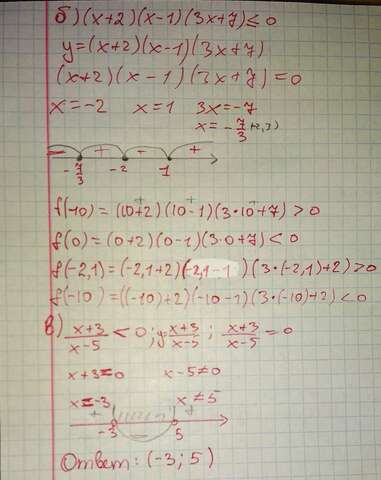 б) (x+2)(x-1)(3x+7)≤0
y=(x+2)(x-1)(3x+7)
(x+2)(x-1)(3x+7)=0
x=-2 x=1 3x=-7
x=-7/3 (-2,3)
- + - +
-7/3 -2 1
f(-10)=(10+2)(10-1)(3·10+7)>0
f(0)=(0+2)(0-1)(3·0+7)<0
f(-2,1)=(-2,1+2)(-2,1-1)(3·(-2,1)+2)>0
f(-10)=((-10)+2)(-10-1)(3·(-10)+2)<0
в) x+3/x-5 <0; y x+3/x-5; x+3/x-5 =0
x+3=0 x-5≠0
x=-3 x≠5
+ +
-3 5
Ответ: (-3; 5)